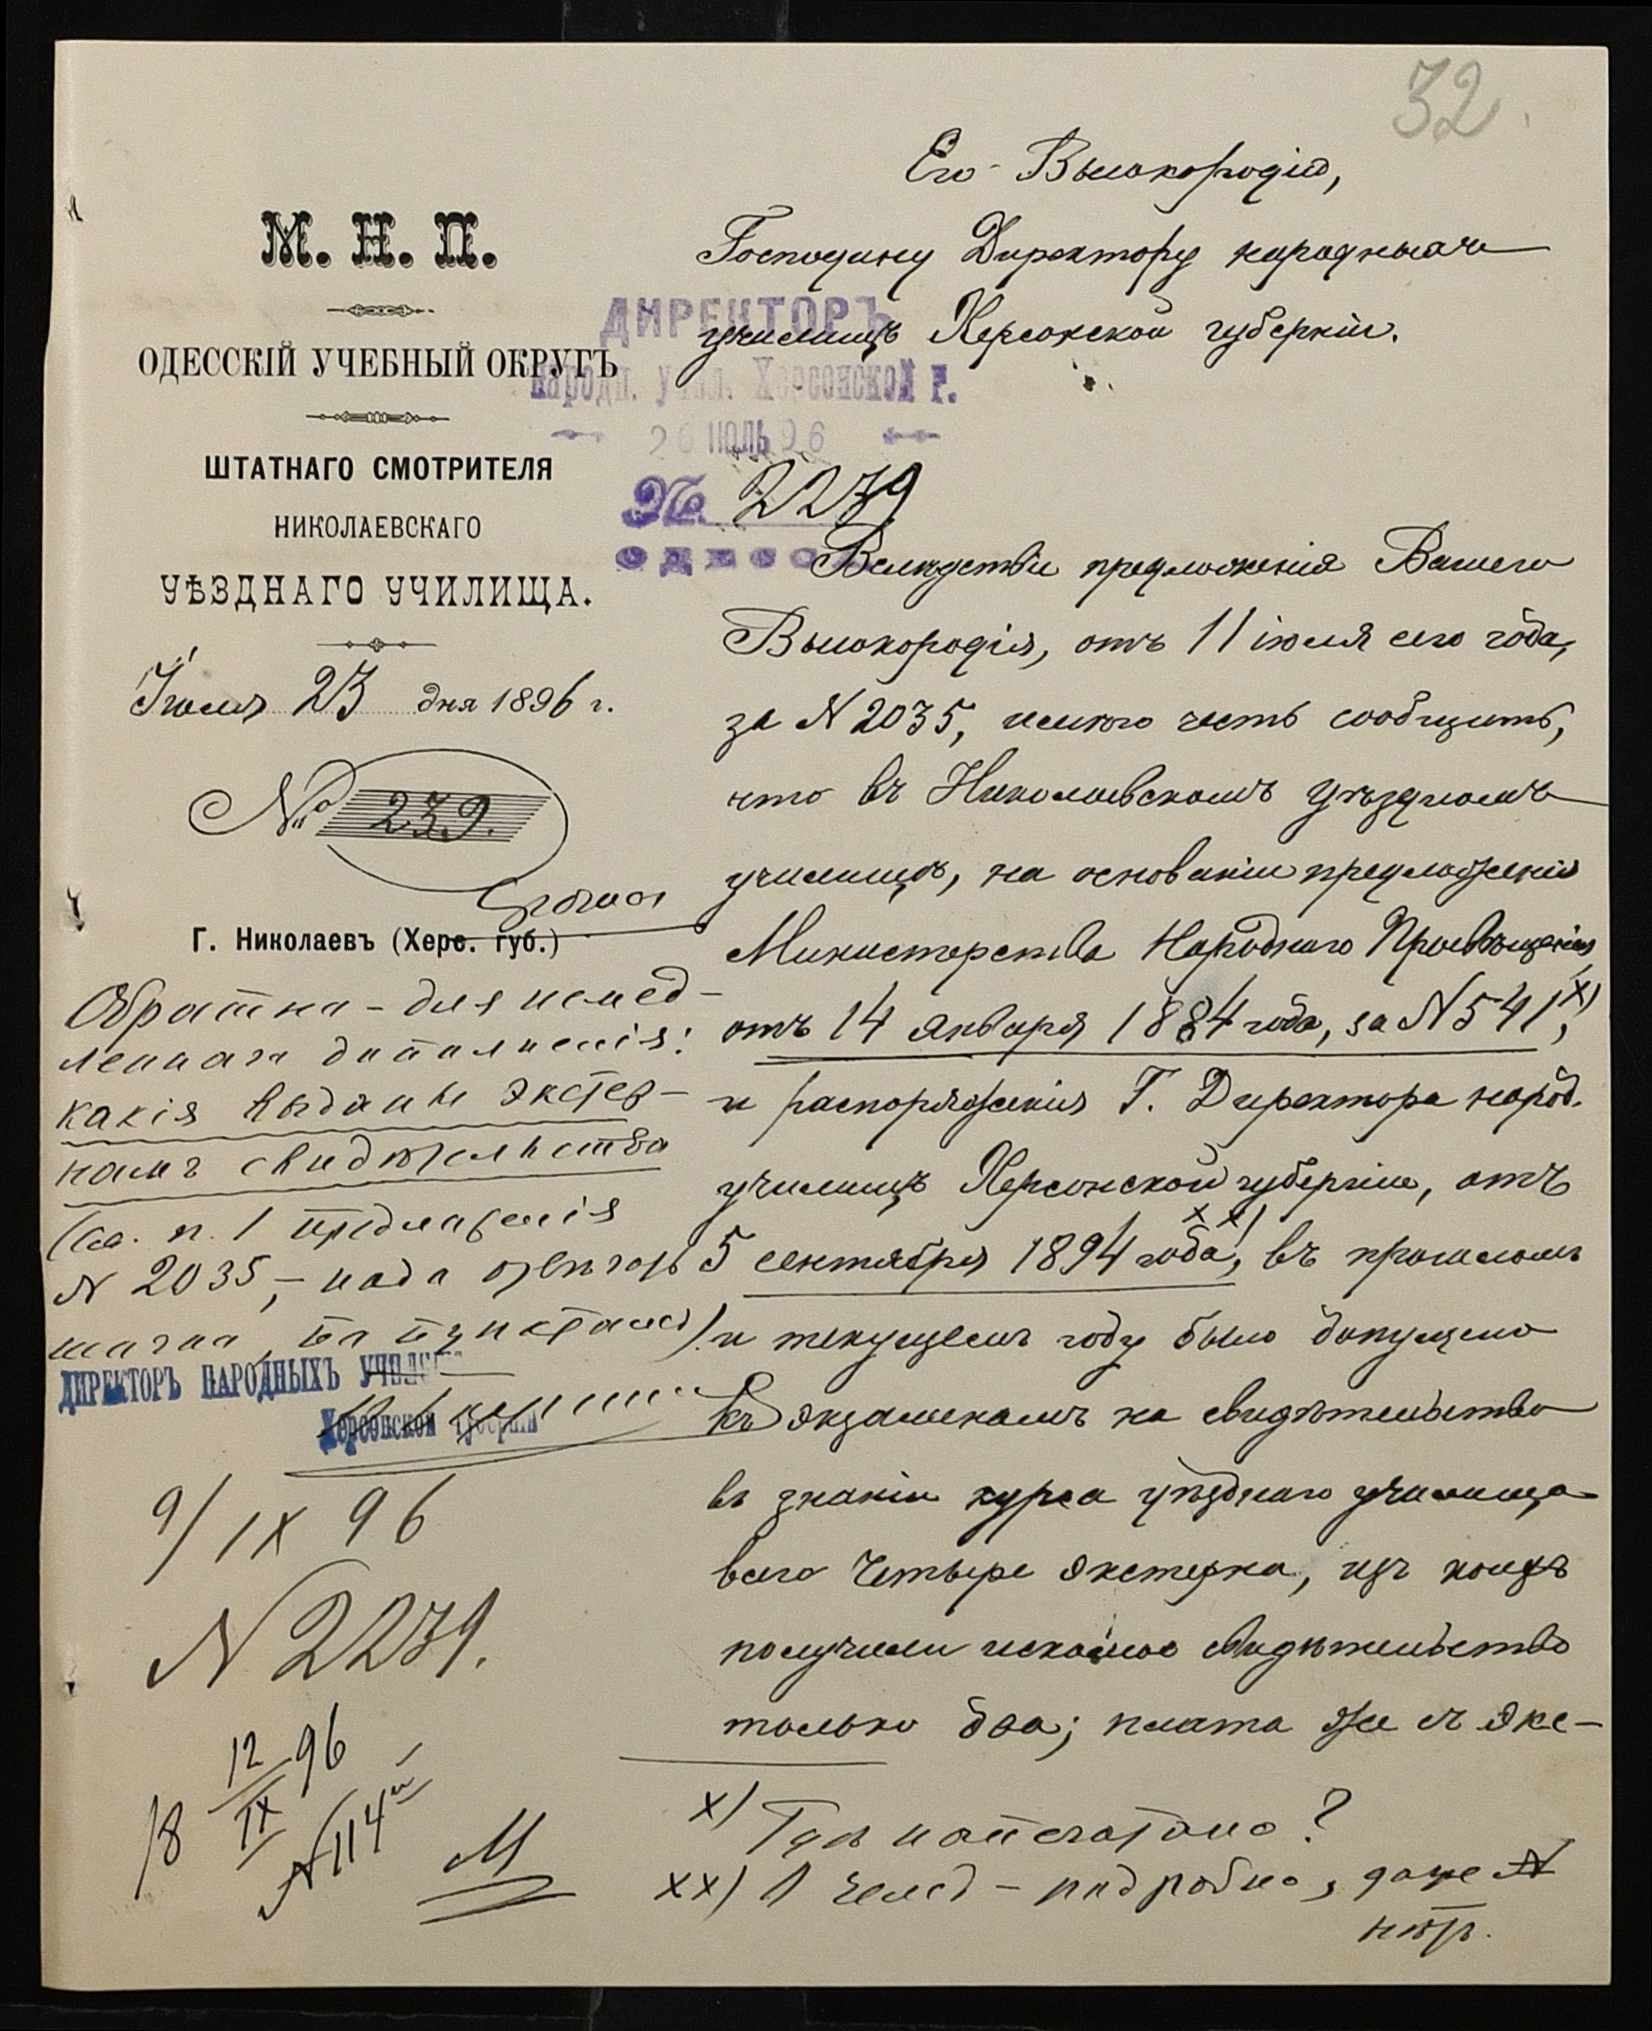 32.
Его Высокородію,
Господину Директору народныхъ
училищъ Херсонской губерніи.
М. Н. П.
ОДЕССКІЙ УЧЕБНЫЙ ОКРУГЪ
ШТАТНАГО СМОТРИТЕЛЯ
НИКОЛАЕВСКАГО
УѢЗДНАГО УЧИЛИЩА.
Іюля 23 дня 1896 г.
№ 239.
Г. Николаевъ (Херс. губ.)
ДИРЕКТОРЪ
Народн. учил. Херсонской г.
26 ІЮЛЬ 96
№ 2239
ОДЕССА
Вслѣдствіе предложенія Вашего
Высокородія, отъ 11 іюля сего года,
за N 2035, имѣю честь сообщить,
что въ Николаевскомъ уѣздномъ
училищѣ, на основаніи предложенія
Министерства Народнаго Просвѣщенія
отъ 14 января 1884 года, за N 541, x)
и распоряженія Г. Директора народ.
училищъ Херсонской губерніи, отъ
5 сентября 1894 года, xx) въ прошломъ
и текущемъ году было допущено
къ экзаменамъ на свидѣтельство
въ знаніи курса уѣзднаго училища
всего четыре экстерна, изъ коихъ
получили искомое свидѣтельство
только два; плата же съ экс-
Обратно - для немед-
леннаго дополненія:
какія выданы экстер-
намъ свидѣтельства
(см. п. 1 предложенія
N 2035, - надо отвѣчать
точно, по пунктамъ).
ДИРЕКТОРЪ НАРОДНЫХЪ УЧИЛИЩЪ
Херсонской губерніи
9/IX 96
N 2239.
18 12/IX 96
N 114
x) Гдѣ напечатано?
xx) - подробно, даже N
нѣтъ.